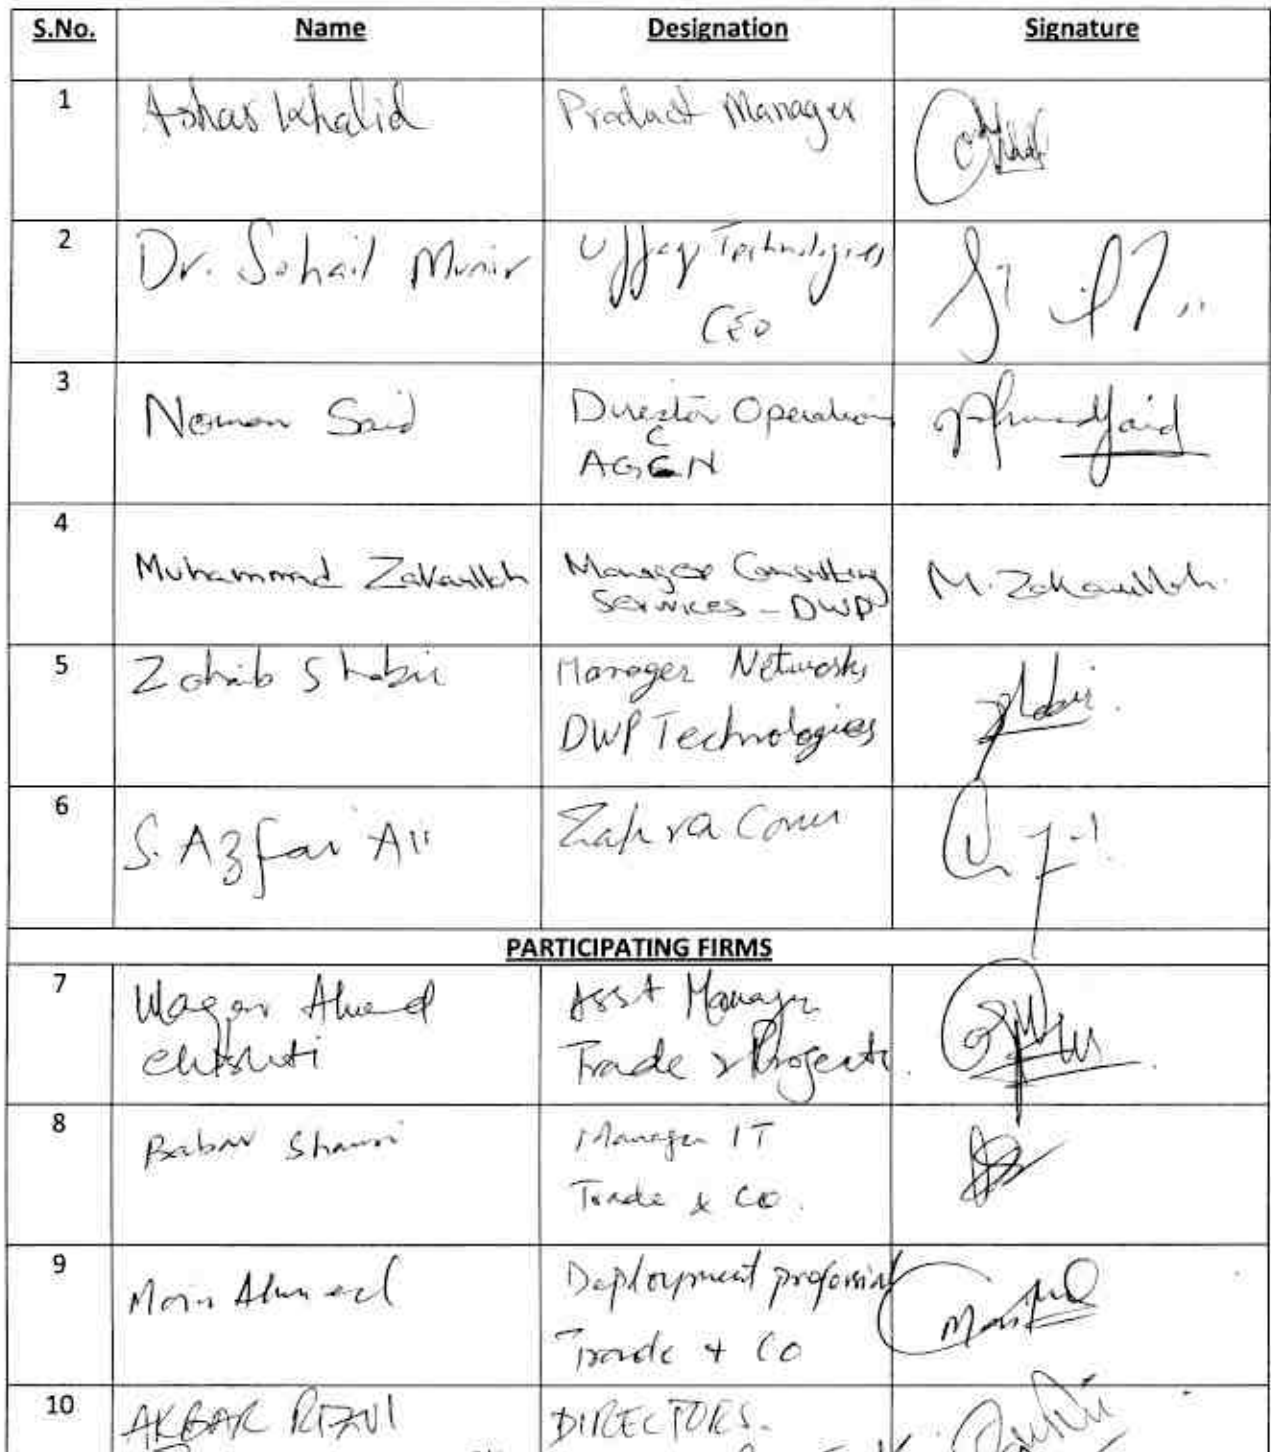 S.No. Name Designation Signature
1 Ashar Khalid Product Manager
2 Dr. Sohail Munir Technologies
CEO
3 Noman Said Director Operation
AGCN
4 Muhammad Zakaullah Manager Consulting
Services - DWP
M. Zakaullah.
5 Zohaib Shabir Manager Networks
DWP Technologies
6 S. Azfar Ali Zahra
PARTICIPATING FIRMS
7 Waqar Ahmed
Chishti
Asst Manager
Trade & Projects.
8 Babar Manager IT
Trade & Co.
9 Moin Ahmed Deployment
Trade & Co
10 AKBAR RIZVI DIRECTORS.